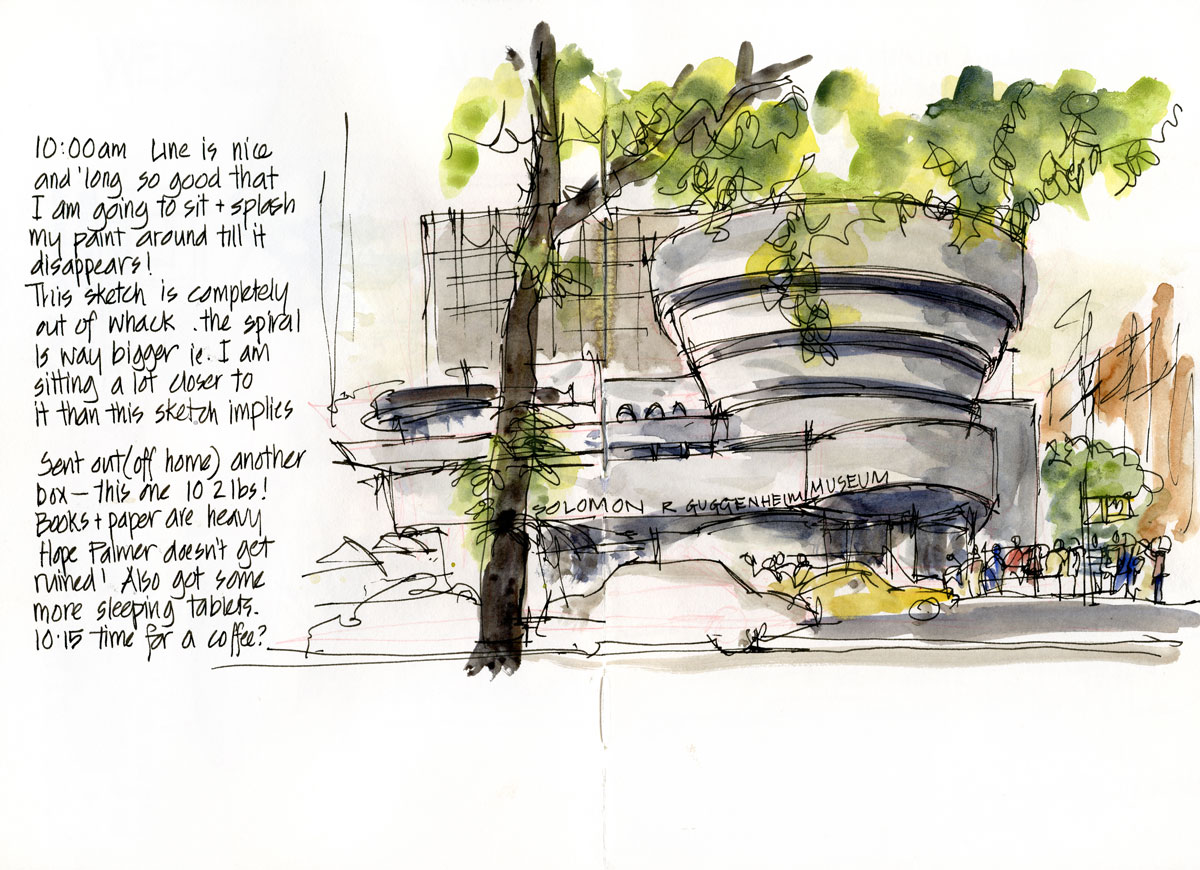 10:00am Line is nice
and long so good that
I am going to sit + splash
my paint around till it
disappears!
This sketch is completely
out of whack . the spiral
is way bigger ie. I am
sitting a lot closer to
it than this sketch implies
Sent out (off home) another
box — this one 10 2 lbs!
Books + paper are heavy
Hope Palmer doesn't get
ruined! Also got some
more sleeping tablets.
10.15 time for a coffee?
SOLOMON R GUGGENHEIM MUSEUM